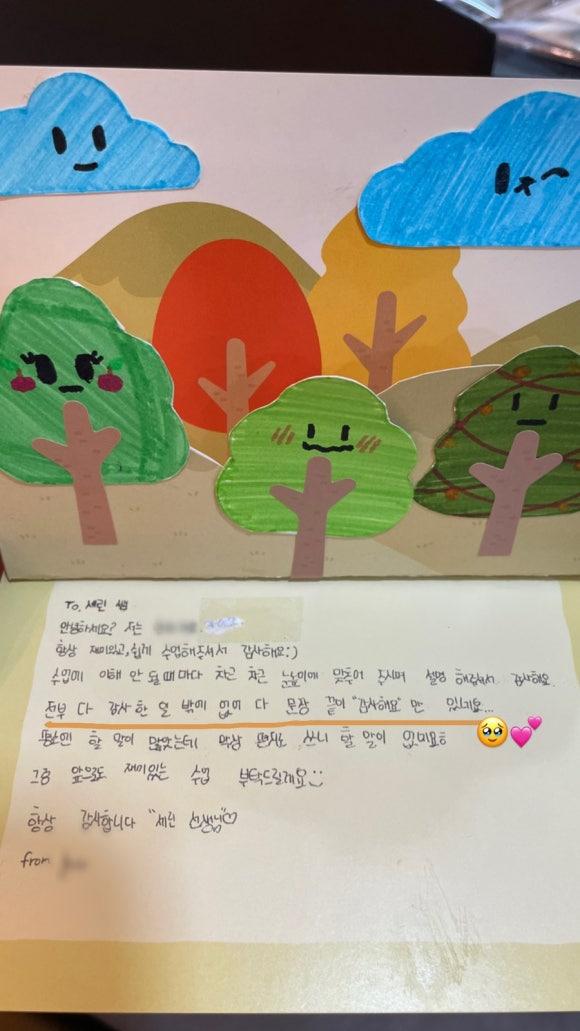 To. 세린 쌤
안녕하세요? 저는
항상 재미있고, 쉽게 수업해주셔서 감사해요:)
수업에 이해 안 될 때마다 차근 차근 눈높이에 맞추어 주시며 설명 해주셔서 감사해요.
전부 다 감사한 일 밖에 없어 다 문장 끝이 "감사해요" 만 있네요...
평소엔 할 말이 많았는데 막상 편지로 쓰니 할 말이 없네요ㅎ
그럼 앞으로도 재미있는 수업 부탁드릴게요
항상 감사합니다 "세린 선생님"♡
from